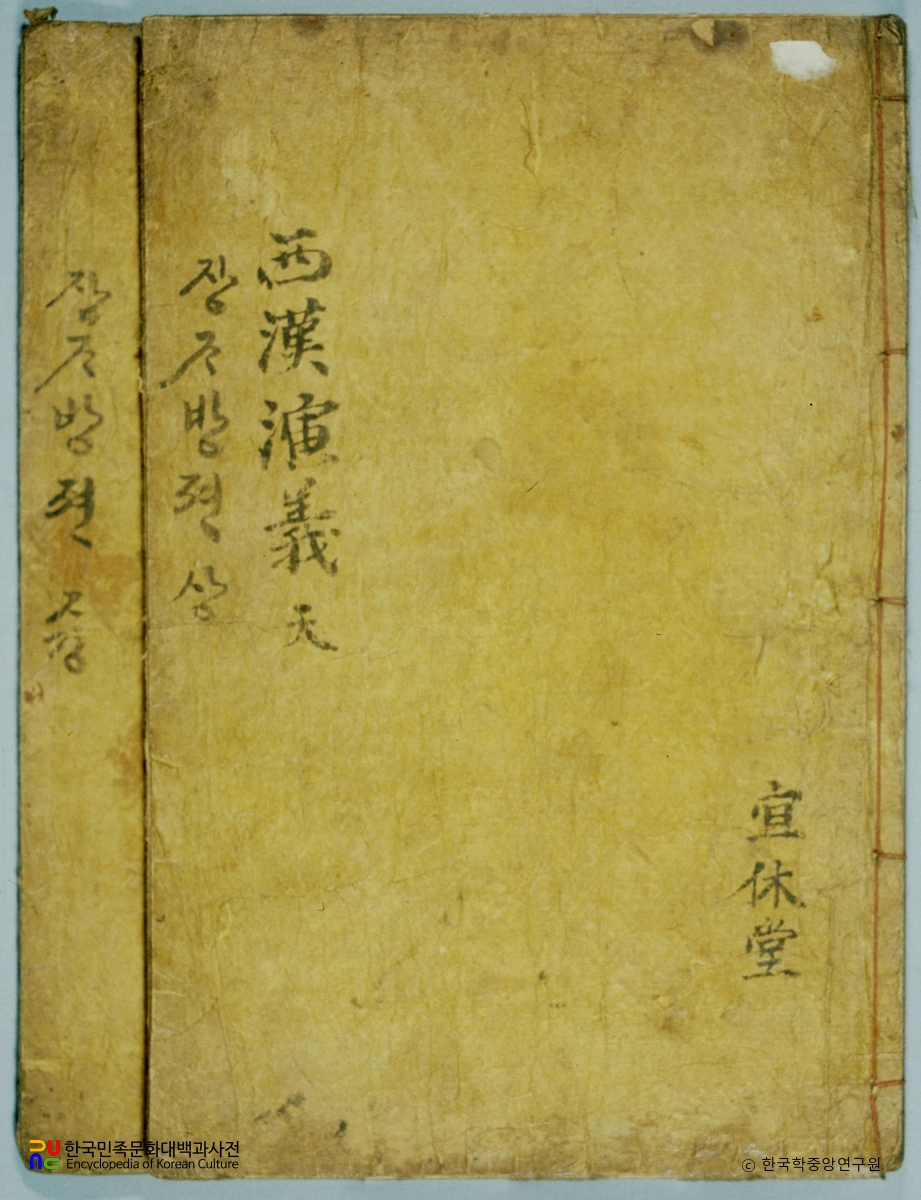 宜休堂
西漢演義 天
장ᄌᆞ방젼 상
장ᄌᆞ방젼
한국민족문화대백과사전
Encyclopedia of Korean Culture
ⓒ 한국학중앙연구원